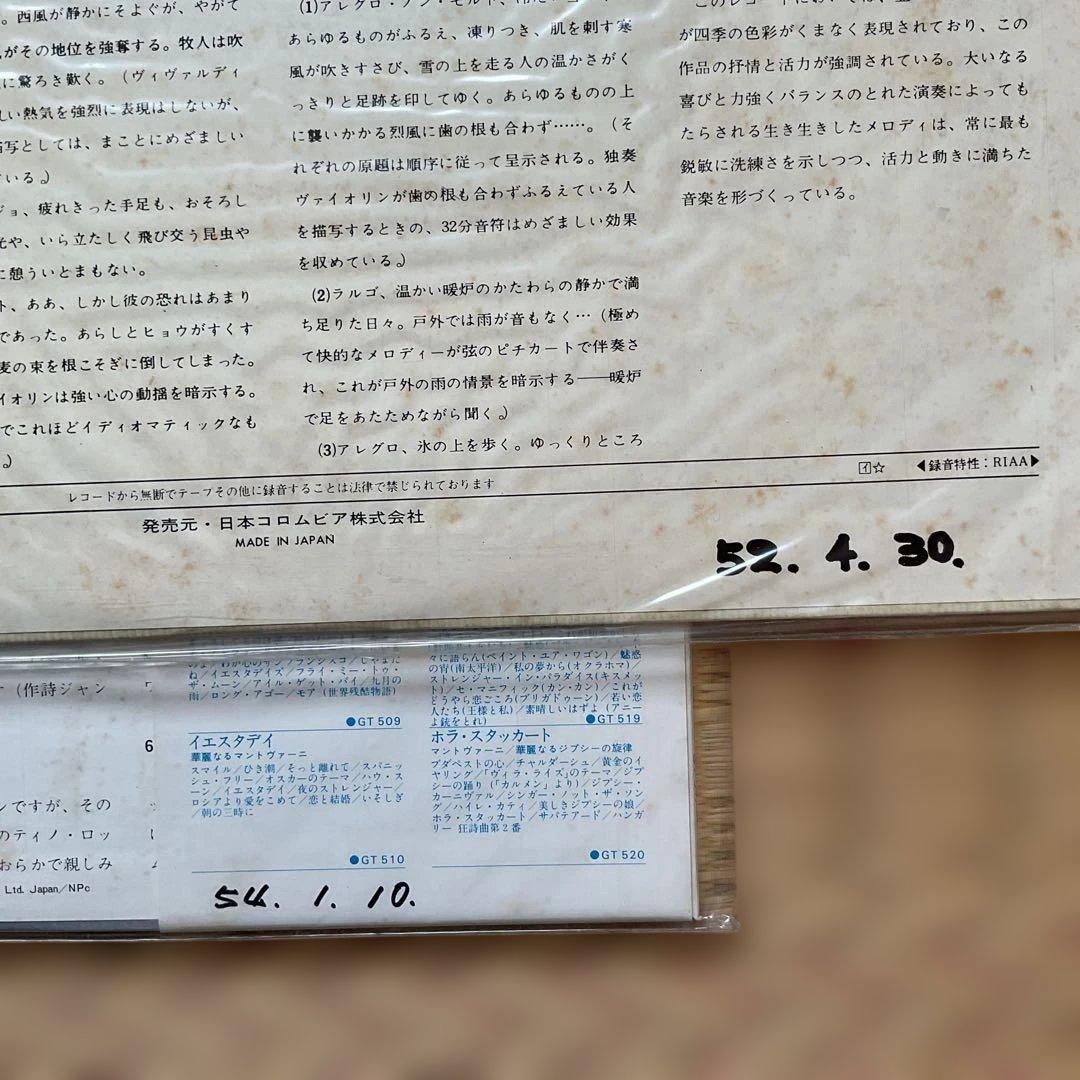 。西風が静かにそよぐが、やがて
がその地位を強奪する。牧人は吹
に驚ろき歎く。（ヴィヴァルディ
しい熱気を強烈に表現はしないが、
描写としては、まことにめざましい
いる。）
ジョ、疲れきった手足も、おそろし
光や、いら立たしく飛び交う昆虫や
に憩ういとまもない。
ト、ああ、しかし彼の恐れはあまり
であった。あらしとヒョウがすくす
麦の束を根こそぎに倒してしまった。
イオリンは強い心の動揺を暗示する。
でこれほどイディオマティックなも
。）
(1)アレグロ・ノン・モルト、
あらゆるものがふるえ、凍りつき、肌を刺す寒
風が吹きすさび、雪の上を走る人の温かさがく
っきりと足跡を印してゆく。あらゆるものの上
に襲いかかる烈風に歯の根も合わず……。（そ
れぞれの原題は順序に従って呈示される。独奏
ヴァイオリンが歯の根も合わずふるえている人
を描写するときの、32分音符はめざましい効果
を収めている。）
(2)ラルゴ、温かい暖炉のかたわらの静かで満
ち足りた日々。戸外では雨が音もなく…（極め
て快的なメロディーが弦のピチカートで伴奏さ
れ、これが戸外の雨の情景を暗示する――暖炉
で足をあたためながら聞く。）
(3)アレグロ、氷の上を歩く。ゆっくりところ
このレコードにおいては、
が四季の色彩がくまなく表現されており、この
作品の抒情と活力が強調されている。大いなる
喜びと力強くバランスのとれた演奏によっても
たらされる生き生きしたメロディは、常に最も
鋭敏に洗練さを示しつつ、活力と動きに満ちた
音楽を形づくっている。
イ☆ ◀録音特性：RIAA▶
レコードから無断でテープその他に録音することは法律で禁じられております
発売元・日本コロムビア株式会社
MADE IN JAPAN
52. 4. 30.
（作詩ジャン
6
ンですが、その
のティノ・ロッ
おらかで親しみ
Ltd. Japan/NPc
わが心のサンフランシスコ／しゃまた
ね／イエスタデイズ／フライ・ミー・トゥ・
ザ・ムーン／アイル・ゲット・バイ／九月の
雨／ロング・アゴー／モア（世界残酷物語）
●GT509
イエスタデイ
華麗なるマントヴァーニ
スマイル／ひき潮／そっと離れて／スパニッ
シュ・フリー／オスカーのテーマ／ハウ・ス
ーン／イエスタデイ／夜のストレンジャー／
ロシアより愛をこめて／恋と結婚／いそしぎ
／朝の三時に
●GT510
々に語らん（ペイント・ユア・ワゴン）／魅惑
の宵（南太平洋）／私の夢から（オクラホマ）／
ストレンジャー・イン・パラダイス（キスメッ
ト）／セ・マニフィック（カン・カン）／これが
どうやら恋ごころ（ブリガドゥーン）／若い恋
人たち（王様と私）／素晴しいはずよ（アニー
よ銃をとれ）
●GT519
ホラ・スタッカート
マントヴァーニ／華麗なるジプシーの旋律
ブダペストの心／チャルダーシュ／黄金のイ
ヤリング／「ヴィラ・ライズ」のテーマ／ジプ
シーの踊り（「カルメン」より）／ジプシー・
カーニヴァル／シンガー・ノット・ザ・ソン
グ／ハイレ・カティ／美しきジプシーの娘／
ホラ・スタッカート／サバテアード／ハンガ
リー狂詩曲第2番
●GT520
54. 1. 10.